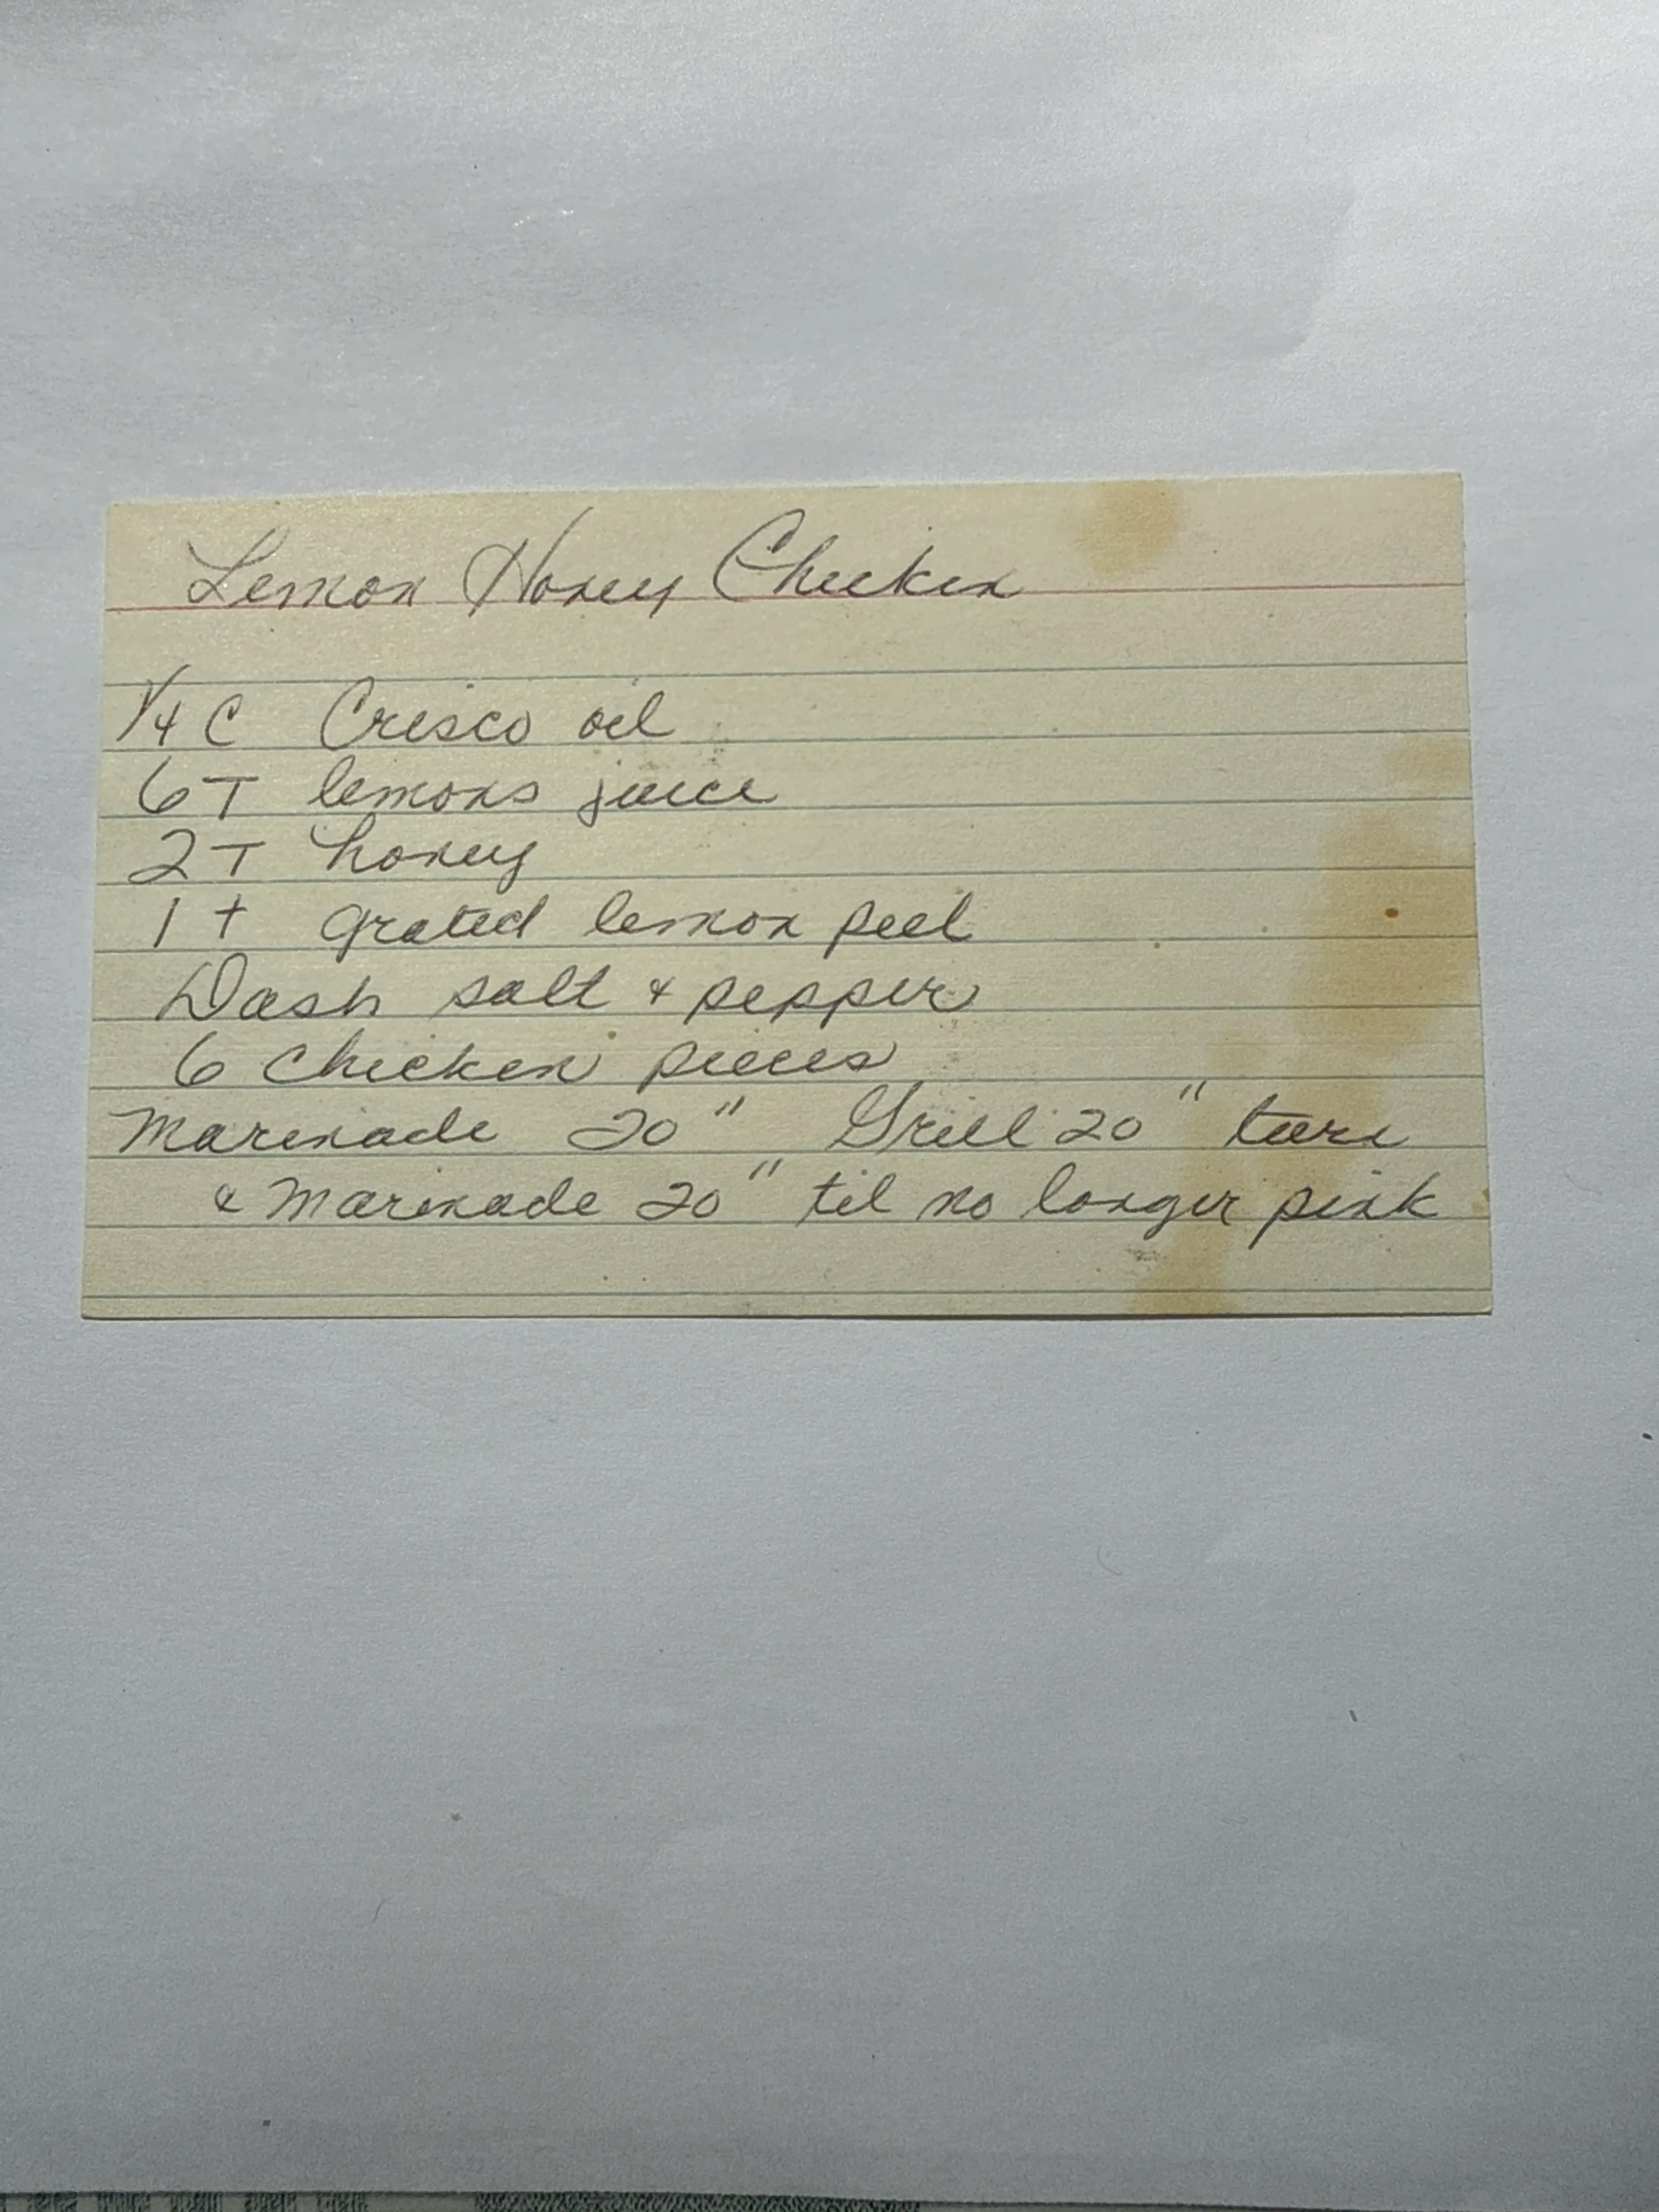 Lemon Honey Chicken
1/4 C Crisco oil
6 T lemons juice
2 T honey
1 t grated lemon peel
Dash salt & pepper
6 chicken pieces
Marinade 20" Grill 20" turn
& marinade 20" til no longer pink